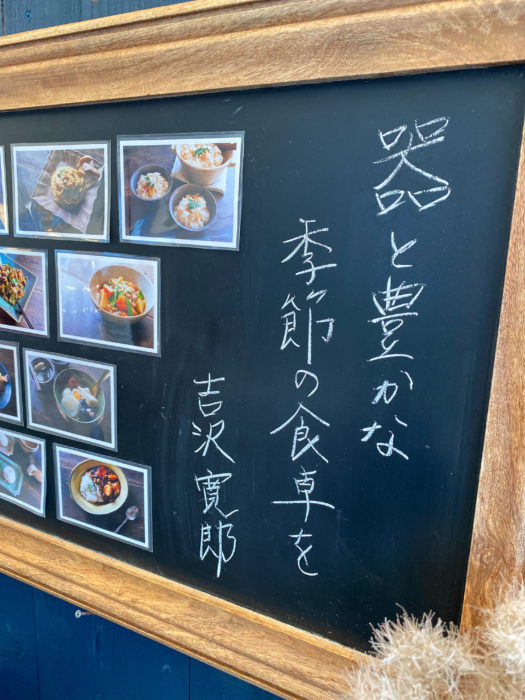 器と豊かな
季節の食卓を
吉沢寛郎